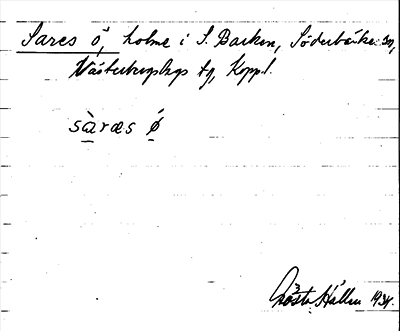 Sares ö, holme i S. Barken, Söderbärke sn,
Västerbergslags tg, Koppl.
sàræs ǿ
Gösta Hallm 1934.